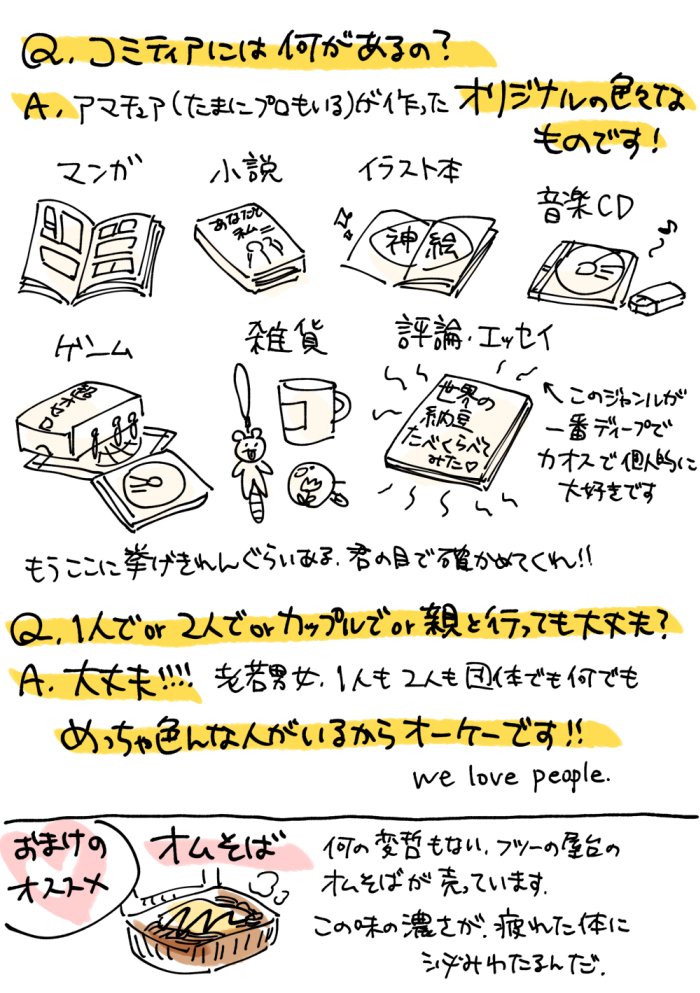 Q. コミティアには何があるの?
A. アマチュア(たまにプロもいる)が作った オリジナルの色々な
ものです!
マンガ
小説
イラスト本
音楽CD
あなたと
私
神
絵
ゲーム
雑貨
評論・エッセイ
世界の
納豆
たべくらべて
みた♡
←このジャンルが
一番ディープで
カオスで個人的に
大好きです
もうここに挙げきれんぐらいある、君の目で確かめてくれ!!
Q. 1人でor 2人でorカップルでor 親と行っても大丈夫?
A. 大丈夫!!!! 老若男女、1人も2人も団体でも何でも
めっちゃ色んな人がいるからオーケーです!!
we love people.
おまけの
オススメ
オムそば
何の変哲もない、フツーの屋台の
オムそばが売っています。
この味の濃さが、疲れた体に
シみわたるんだ。